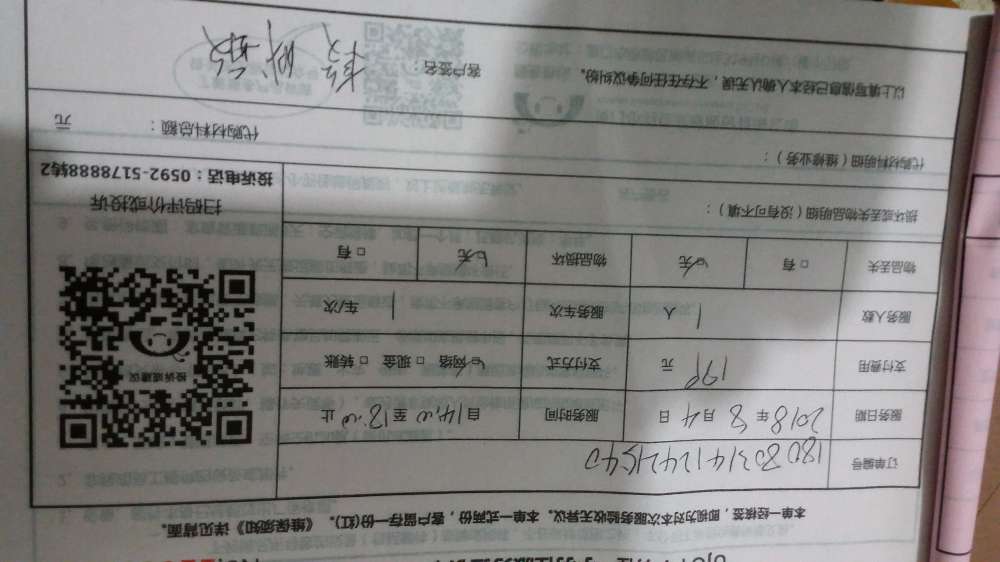 本单一经核签，即视为对本次服务验收无异议。本单一式两份，客户留存一份(红)。《维保须知》详见背面。
订单编号
服务日期 2018年8月4日 服务时间 自14:00至18:00止
支付费用 199 元 支付方式 ☑网络 □现金 □转账
服务人数 1 人 服务车次 1 车/次
物品丢失 □有 ☑无 物品损坏 ☑无 □有
投诉或建议
扫码评价或投诉
投诉电话：0592-5178888转2
损坏或丢失物品明细（没有可不填）：
代购材料明细（维修业务）：
代购材料总额： 元
以上填写信息已经本人确认无误，不存在任何争议纠纷。 客户签名：